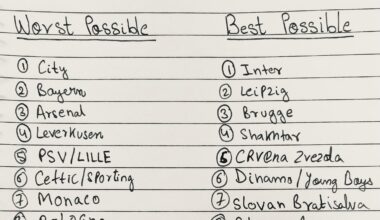 Worst Possible
① City
② Bayern
③ Arsenal
④ Leverkusen
⑤ PSV/LILLE
⑥ Celtic/Sporting
⑦ Monaco
Best Possible
① Inter
② Leipzig
③ Brugge
④ Shakhtar
⑤ CRVENA ZVEZDA
⑥ Dinamo/Young Boys
⑦ Slovan Bratislava